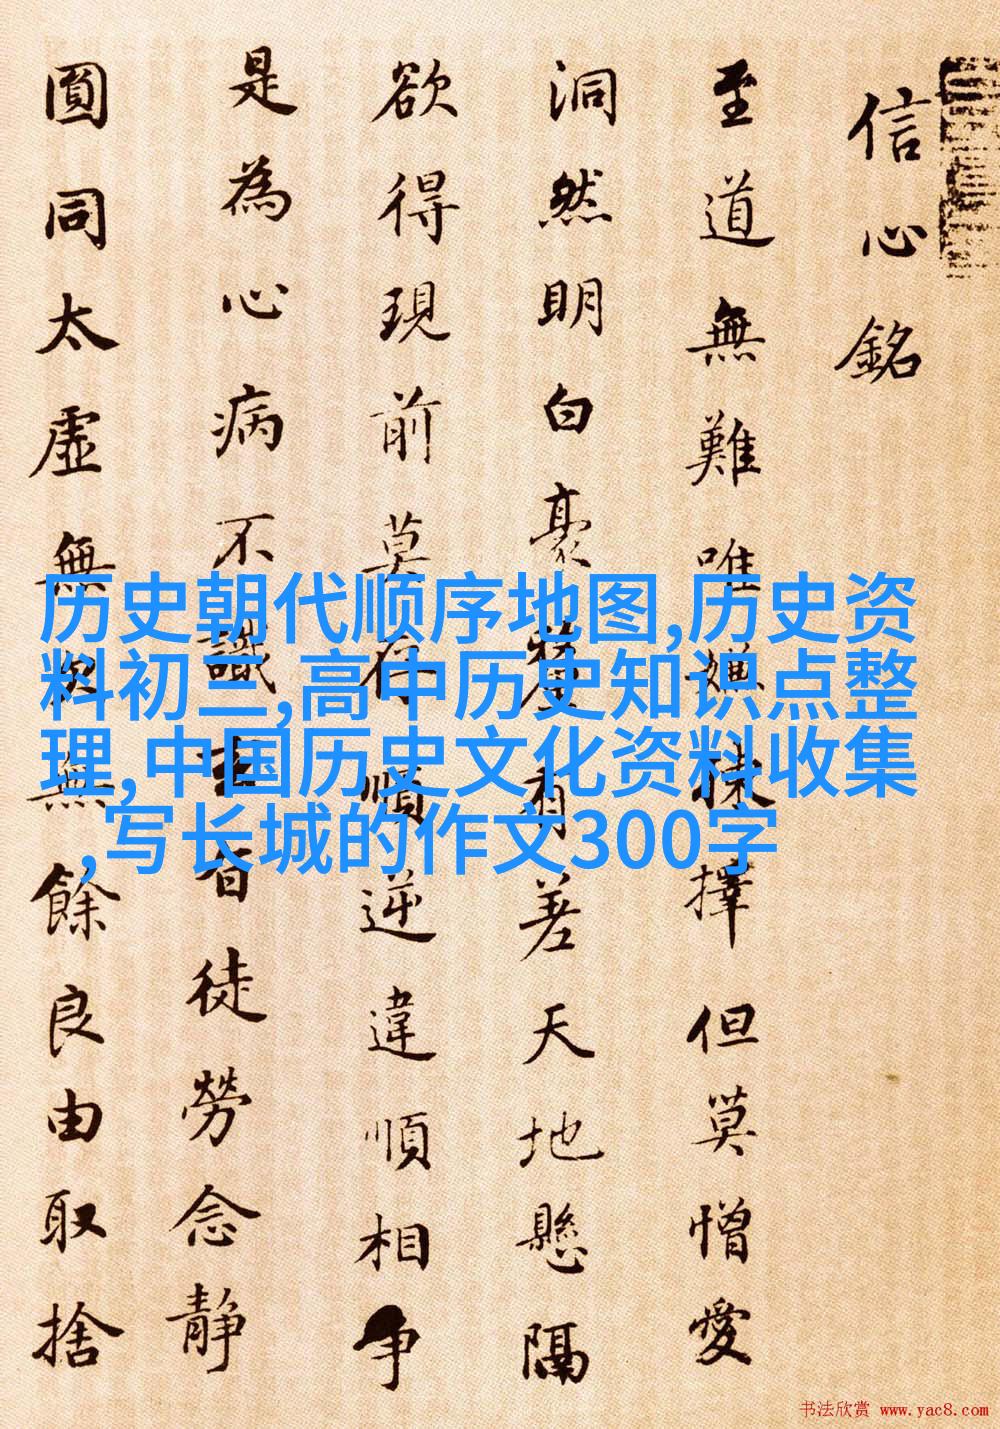 信心銘
至道無難唯嫌揀擇但莫憎愛
洞然明白豪釐有差天地懸隔
欲得現前莫存順逆違順相爭
是為心病不識玄旨徒勞念静
圓同太虛無欠無餘良由取捨
历史朝代顺序地图,历史资
料初三,高中历史知识点整
理,中国历史文化资料收集
,写长城的作文300字
书法欣赏 www.yac8.com